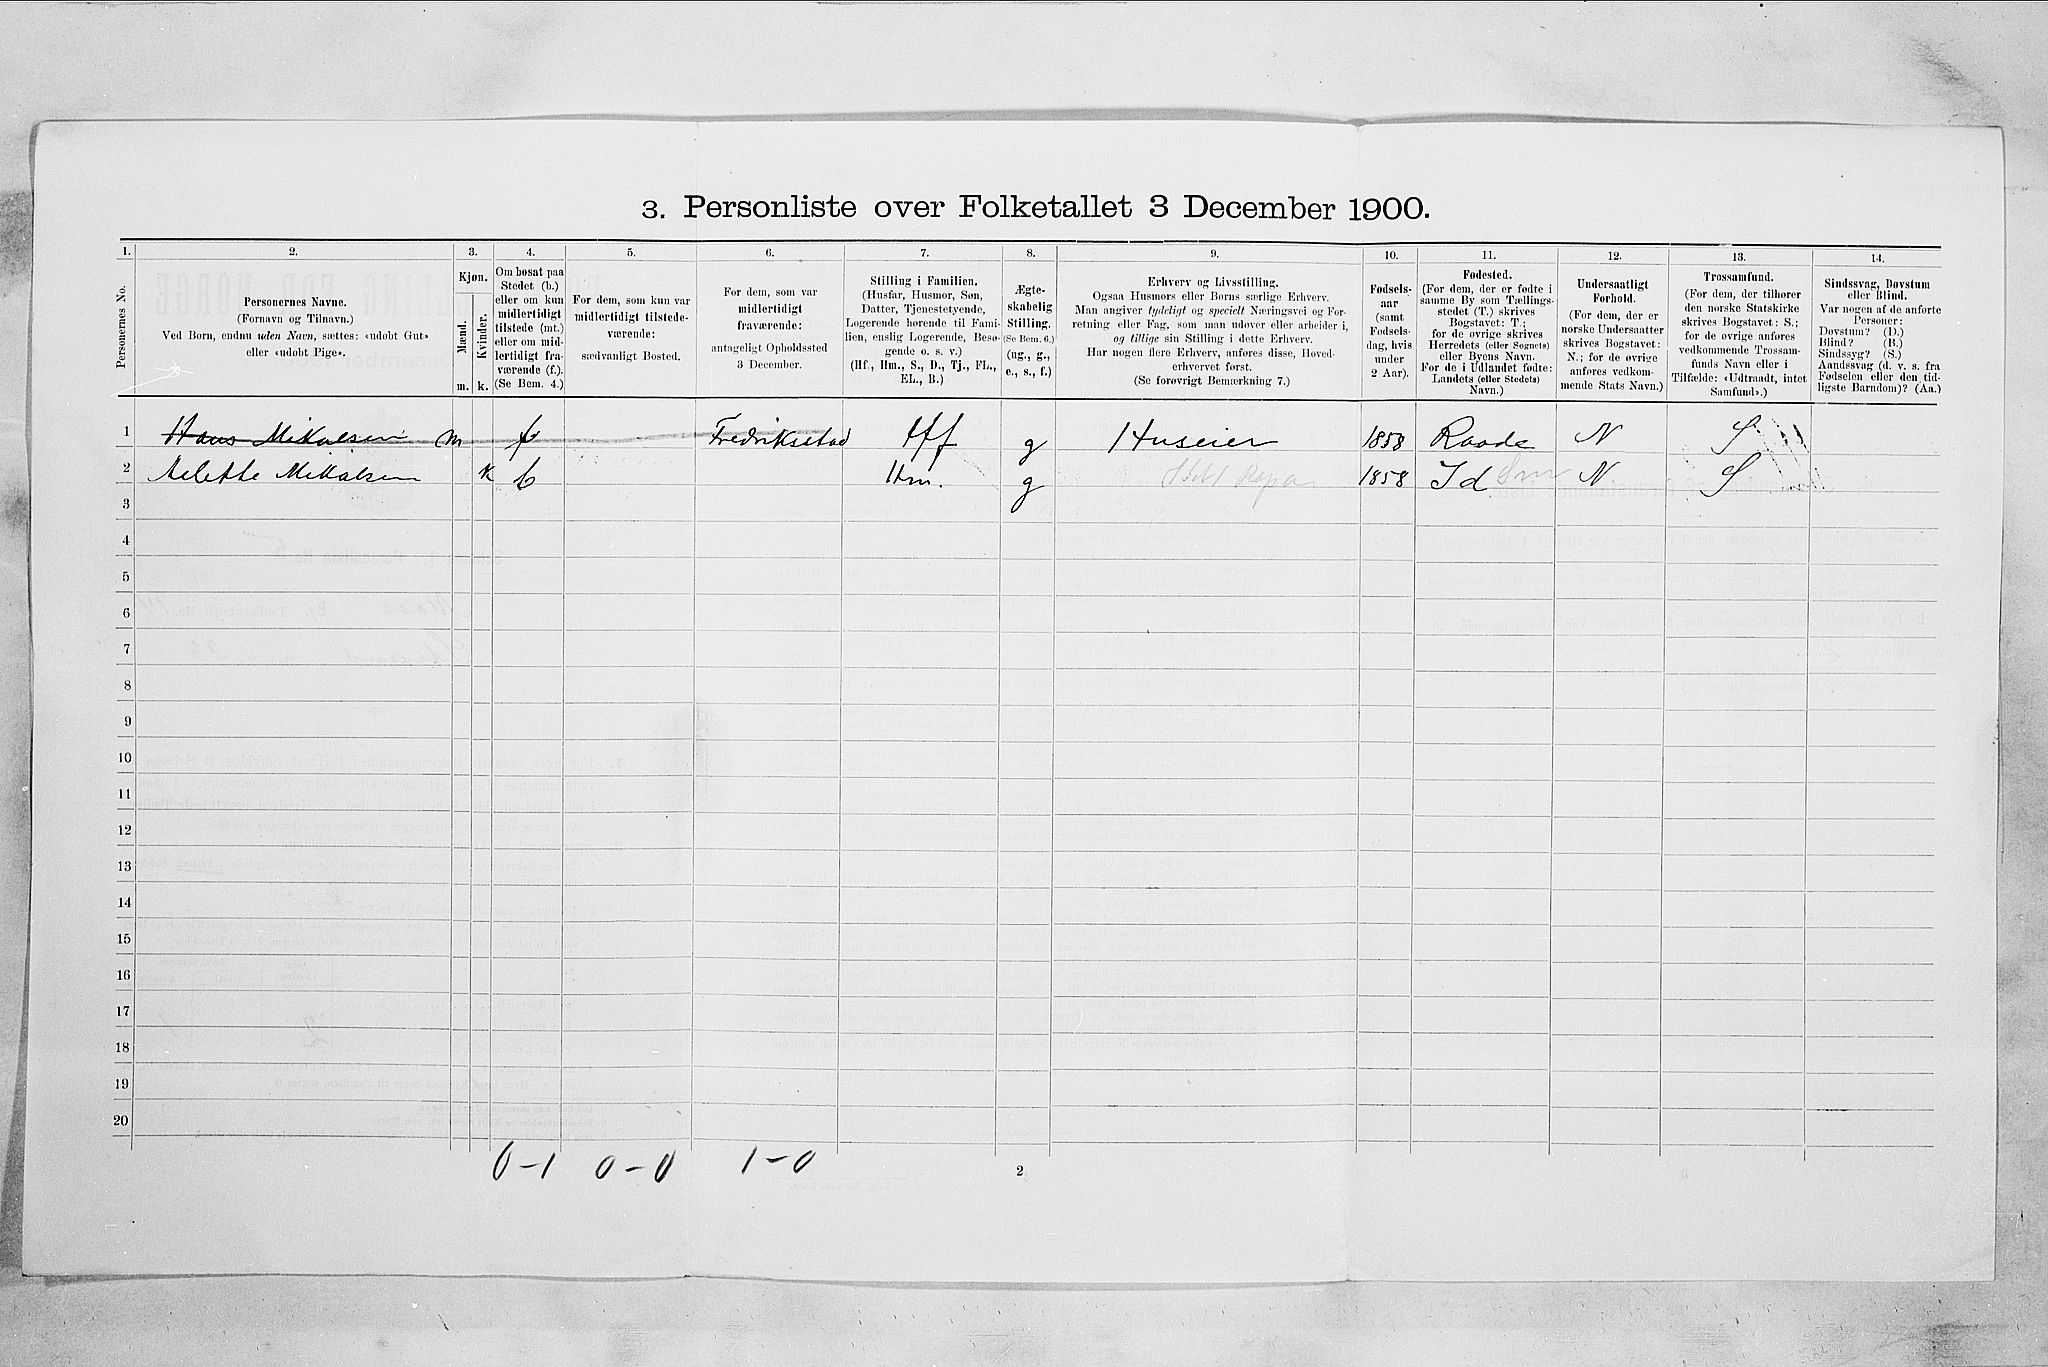 3. Personliste over Folketallet 3 December 1900.
1. 2. 3. 4. 5. 6. 7. 8. 9. 10. 11. 12. 13. 14.
Personernes No.
Personernes Navne.
(Fornavn og Tilnavn.)
Ved Børn, endnu uden Navn, sættes: «udøbt Gut»
eller «udøbt Pige».
Kjøn.
Mænd.
Kvinder.
m. k.
Om bosat paa
Stedet (b.)
eller om kun
midlertidigt
tilstede (mt.)
eller om mid-
lertidigt fra-
værende (f.).
(Se Bem. 4.)
For dem, som kun var
midlertidigt tilstede-
værende:
sædvanligt Bosted.
For dem, som var
midlertidigt
fraværende:
antageligt Opholdssted
3 December.
Stilling i Familien.
(Husfar, Husmor, Søn,
Datter, Tjenestetyende,
Logerende hørende til Fami-
lien, enslig Logerende, Besø-
gende o. s. v.)
(Hf., Hm., S., D., Tj., FL.,
EL., B.)
Ægte-
skabelig
Stilling.
(Se Bem. 6.)
(ug., g.,
e., s., f.)
Erhverv og Livsstilling.
Ogsaa Husmors eller Børns særlige Erhverv.
Man angiver tydeligt og specielt Næringsvei og For-
retning eller Fag, som man udøver eller arbeider i,
og tillige sin Stilling i dette Erhverv.
Har nogen flere Erhverv, anføres disse, Hoved-
erhvervet først.
(Se forøvrigt Bemærkning 7.)
Fødsels-
aar
(samt
Fødsels-
dag, hvis
under
2 Aar).
Fødested.
(For dem, der er fødte i
samme By som Tællings-
stedet (T.) skrives
Bogstavet: T.;
for de øvrige skrives
Herredets (eller Sognets)
eller Byens Navn.
For de i Udlandet fødte:
Landets (eller Stedets)
Navn.)
Undersaatligt
Forhold.
(For dem, der er
norske Undersaatter
skrives Bogstavet:
N.; for de øvrige
anføres vedkom-
mende Stats Navn.)
Trossamfund.
(For dem, der tilhører
den norske Statskirke
skrives Bogstavet: S.;
for de øvrige anføres
vedkommende Trossam-
funds Navn eller i
Tilfælde: «Udtraadt, intet
Samfund».)
Sindssvag, Døvstum
eller Blind.
Var nogen af de anførte
Personer:
Døvstum? (D.)
Blind? (B.)
Sindssyg? (S.)
Aandssvag (d. v. s. fra
Fødselen eller den tid-
ligste Barndom)? (Aa.)
1 Hans Mikalsen m f Fredriksstad Hf g Huseier 1858 Raade N S
2 Mikalsen k b Hm. g 1858 Id N S
3
4
5
6
7
8
9
10
11
12
13
14
15
16
17
18
19
20
0-1 0-0 1-0
2